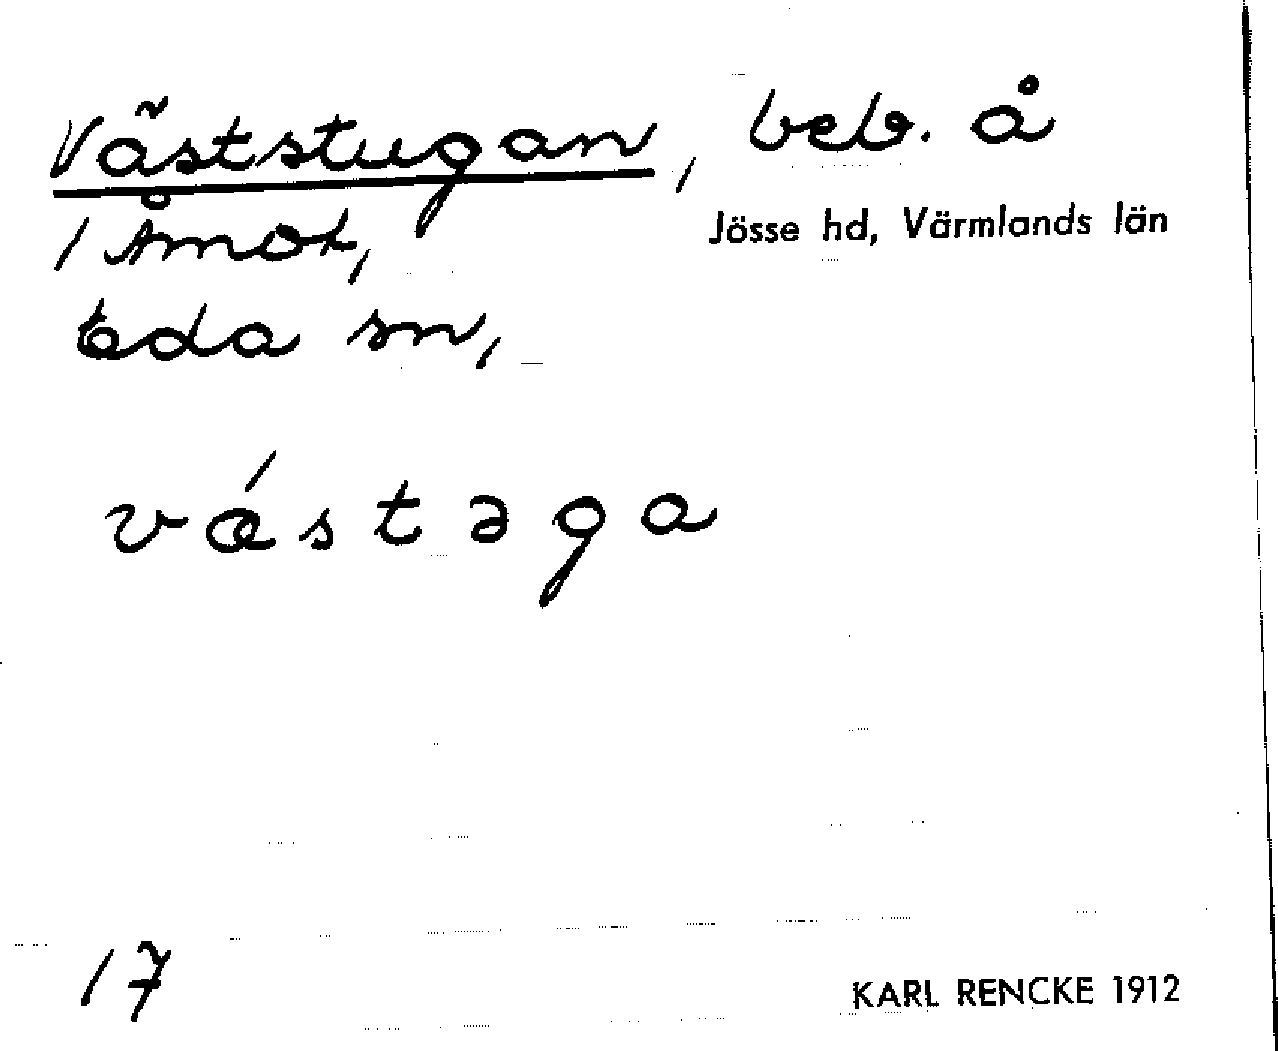 Väststugan, beb. å
1 Åmot,
Jösse hd, Värmlands län
Eda sn,
vǽstəga
17
KARL RENCKE 1912